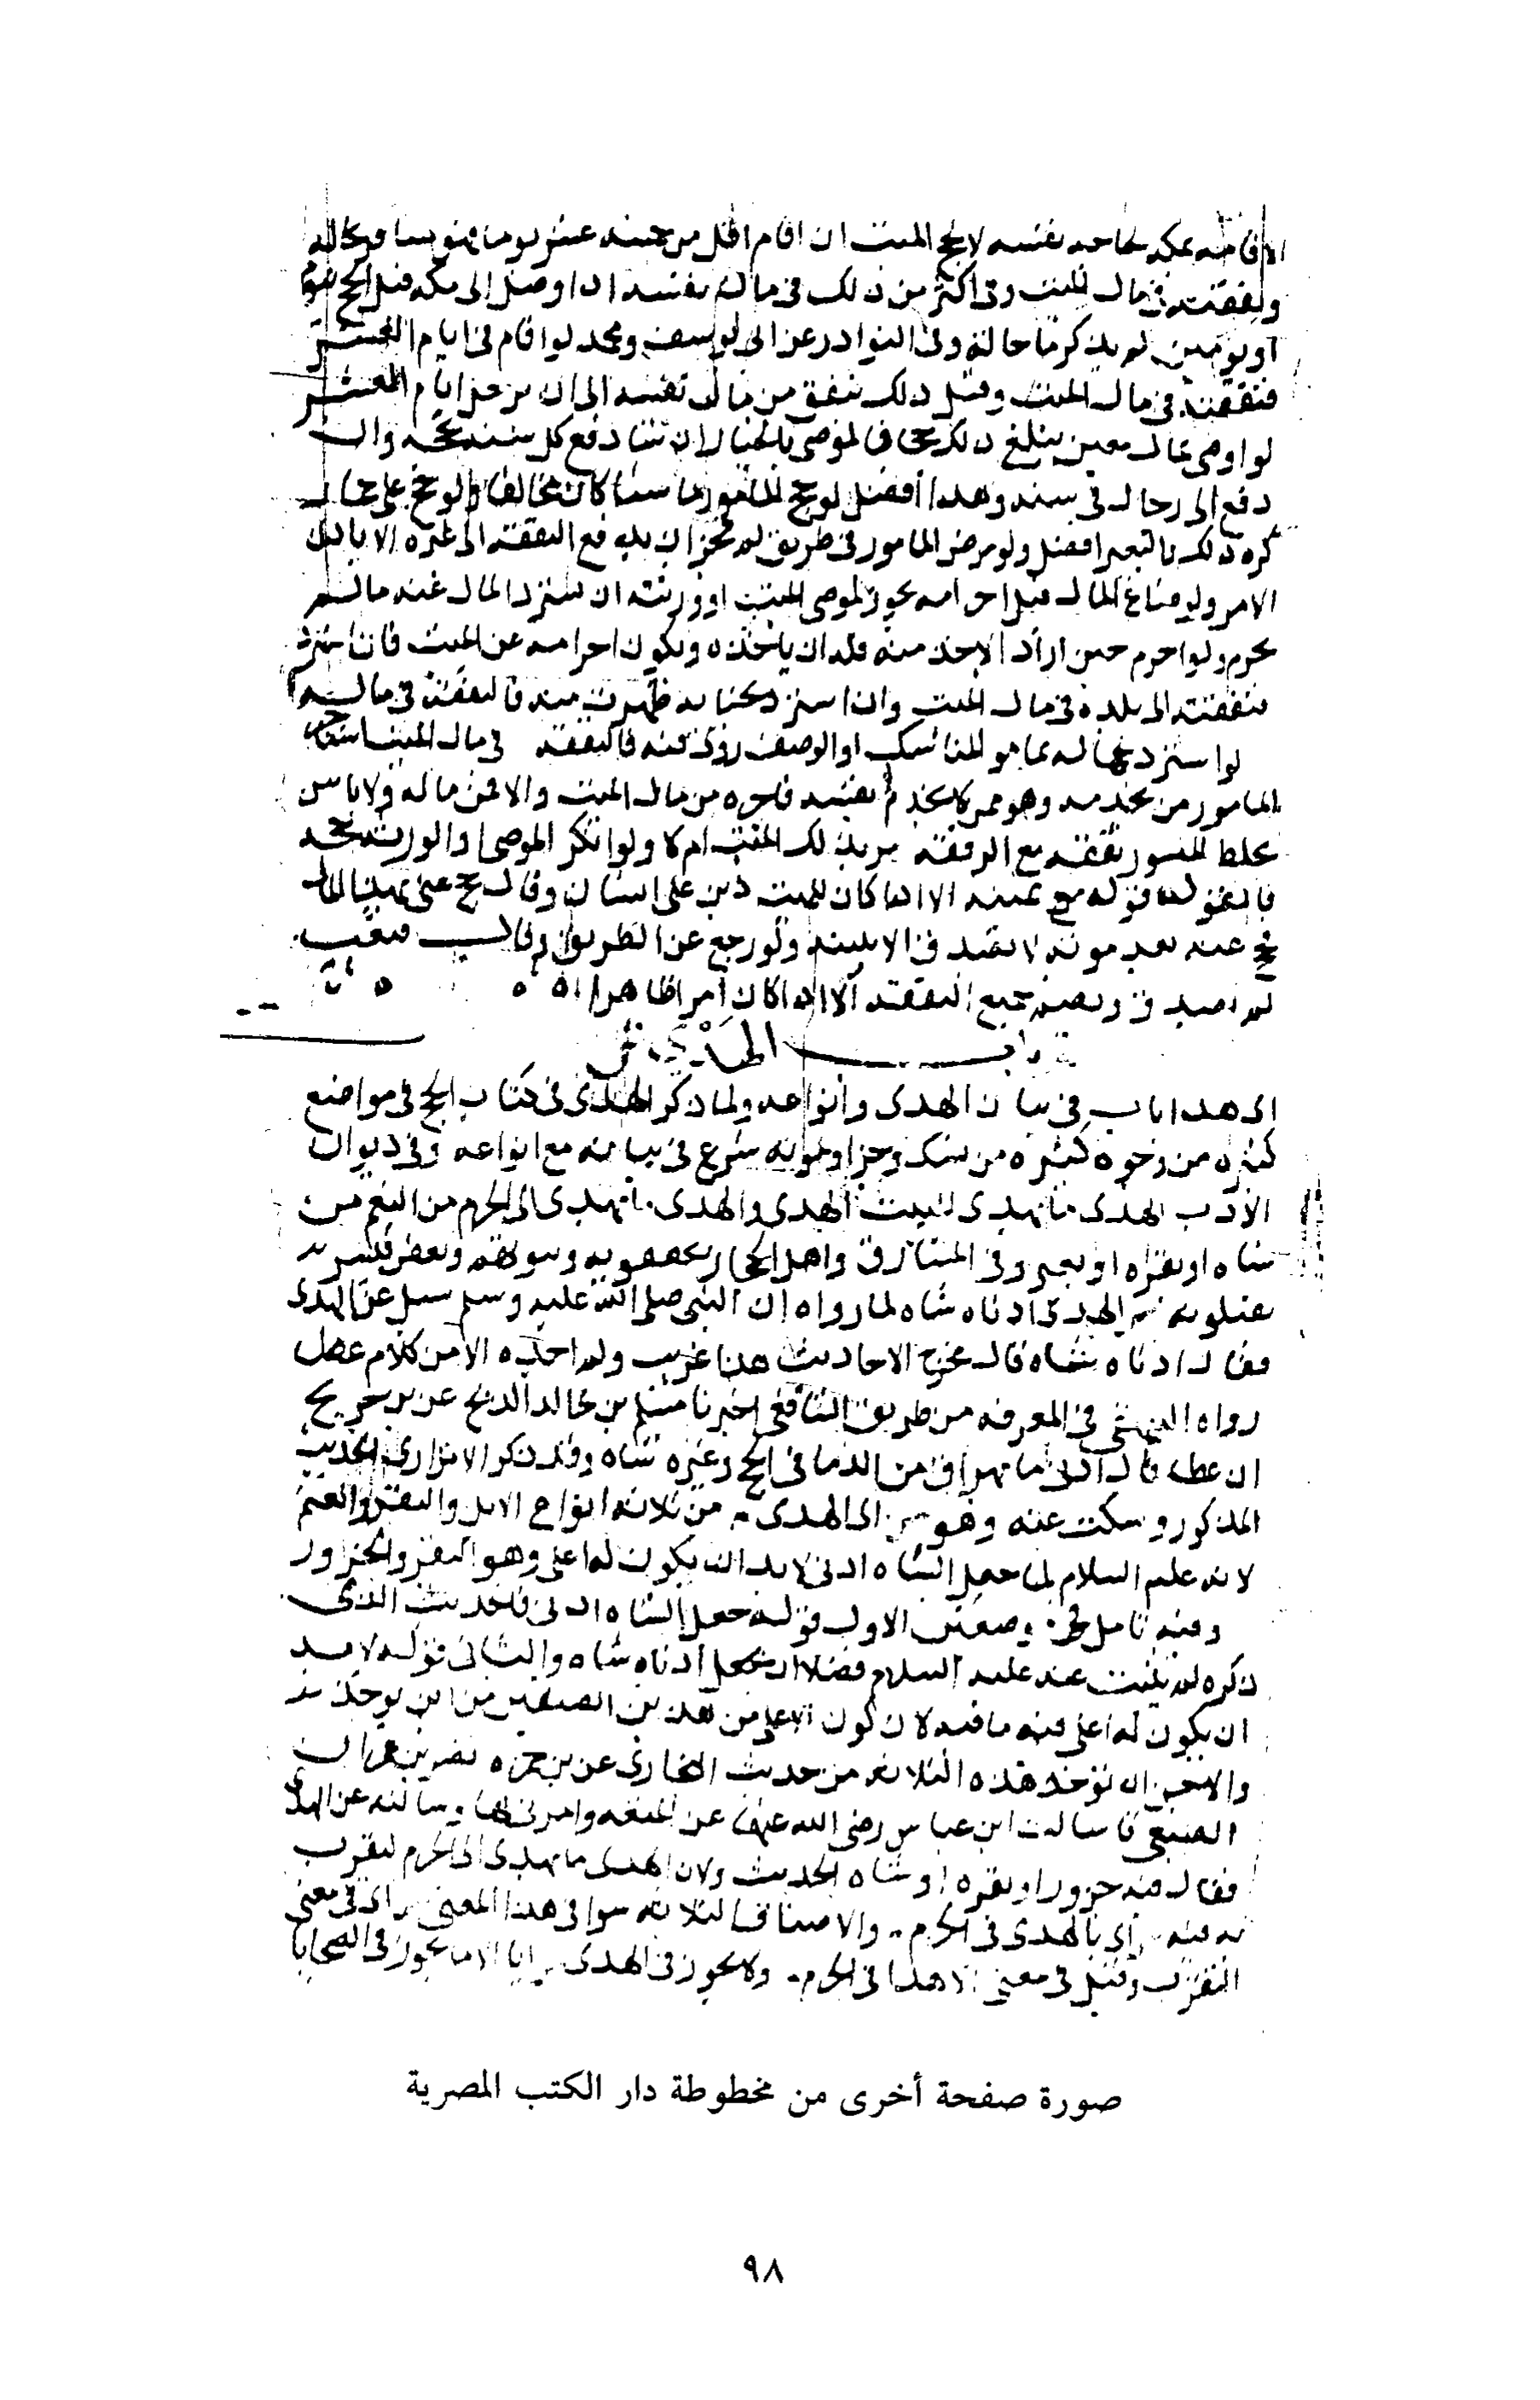 الاقامة بمكة لحاجة نفسه لا لحج الميت ان اقام اقل من خمسة عشر يوما فهو مسافر بحاله
ونفقته في مال الميت وفي اكثر من ذلك في مال نفسه اذا وصل الى مكة قبل الحج بيوم
او يومين لم يذكر ما حاله وفي النوادر عن ابي يوسف ومحمد لو اقام في ايام العشر
فنفقته في مال الميت وقبل ذلك ينفق من مال نفسه الى ان يدخل ايام العشر
لو اوصى بمال معين يبلغ ذلك حججا فالموصى بالخيار ان شا دفع كل سنة حجة وان
دفع الى رجال في سنة وهذا افضل لو حج المامور ماشيا كان مخالفا ولو حج على حمار
كره ذلك والبعير افضل ولو مرض المامور في طريق لم يجز ان يدفع النفقة الى غيره الا باذن
الامر ولو ضاع المال قبل احرامه يجوز لوصي الميت او ورثته ان يسترد المال عنه ما لم
يحرم ولو احرم حين اراد الاخذ منه فله ان ياخذه ويكون احرامه عن الميت فان استرد
فنفقته الى بلده في مال الميت وان استرد بخيانة ظهرت منه فالنفقة في ماله
لو استرد لجهاله بامور المناسك او لضعف رؤى فيه فالنفقة في مال الميت استاجر
المامور من يخدمه وهو ممن لا يخدم نفسه فاجره من مال الميت والا فمن ماله ولا باس
بخلط المامور نفقته مع الرفقة امر بذلك الميت ام لا ولو انكر الموصي او الورثة حجه
فالقول له قوله مع يمينه الا اذا كان للميت دين على انسان وقال حج عني بهذا المال
فحج عنه بعد موته لا يصدق الا ببينة ولو رجع عن الطريق وقال منعت
لم يصدق ويضمن جميع النفقة الا اذا كان امرا ظاهرا
باب الهدي
اى هذا باب في بيان الهدى وانواعه ولما ذكر الهدى في كتاب الحج في مواضع
كثيرة من وجوه كثيرة من نسك وجزا ومونة شرع في بيانه مع انواعه وفي ديوان
الادب الهدى ما يهدى للبيت الهدى والهدى ما يهدى الى الحرم من النعم من
شاه او بقره او بعير وفي المشارق واهل الحجاز يخففونه وسواهم وبعض قيس
يثقلونه الهدى ادناه شاه لما رواه ان النبي صلى الله عليه وسلم سيل عن الهدى
فقال ادناه شاه قال مخرج الاحاديث هذا غريب ولم اجده الا من كلام عطا
رواه البيهقي في المعرفة من طريق الشافعي اخبرنا مسلم بن خالد الزنجي عن بن جريج
ان عطا قال ادنى ما يهراق من الدما في الحج وغيره شاه وقد ذكر الاترازي الحديث
المذكور وسكت عنه وهو اى الهدى من ثلاثة انواع الابل والبقر والغنم
لانه عليه السلام لما جعل الشاه ادنى لا بد ان يكون له اعلى وهو البقر والجزور
وفيه تامل من وجهين الاول قوله جعل الشاه ادنى فالحديث الذى
ذكره لم يثبت عنه عليه السلام فضلا ان يجعل ادناه شاه والثانى قوله لا بد
ان يكون له اعلى فيه ما فيه لان كون الاعلى من هذين الصنفين من اين يوخذ
والاحسن ان توخذ هذه الثلاثة من حديث البخارى عن بن جمره نصر بن عمران
الضبعي قال سالت ابن عباس رضى الله عنهما عن المتعة وامرنى بها وسالته عن الهدى
فقال فيه جزور او بقره او شاه الحديث ولان الهدى ما يهدى الى الحرم ليتقرب
به فيه اى بالهدى في الحرم والاصناف الثلاثة سوا في هذا المعنى اى في معنى
التقرب وقيل في معنى الاهدا في الحرم ولا يجوز في الهدى ايا الا ما يجوز في الضحايا
صورة صفحة أخرى من مخطوطة دار الكتب المصرية
٩٨